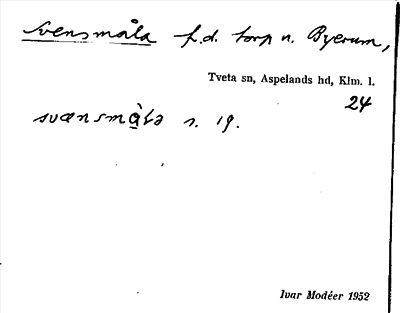 Svensmåla f.d. torp u. Byerum,
Tveta sn, Aspelands hd, Klm. l.
24
svænsmå̀la s. 19.
Ivar Modéer 1952